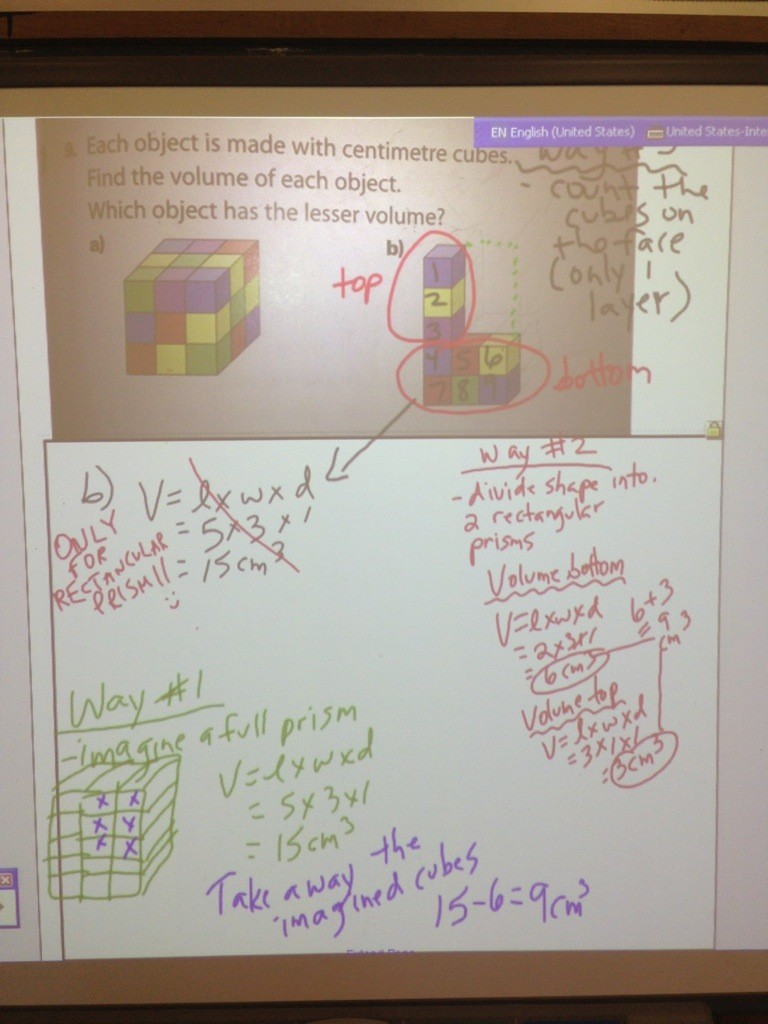 EN English (United States) United States-Inte
9. Each object is made with centimetre cubes.
Find the volume of each object.
Which object has the lesser volume?
a)
b)
top
1
2
3
4 5 6
7 8 9
bottom
Way # 3
- count the
cubes on
the face
(only 1
layer)
b) V = l x w x d
= 5 x 3 x 1
= 15 cm³
ONLY
FOR
RECTANGULAR
PRISM!!
Way #2
- divide shape into
2 rectangular
prisms
Volume bottom
V = l x w x d
= 2 x 3 x 1
= 6 cm³
6 + 3
= 9
cm³
Volume top
V = l x w x d
= 3 x 1 x 1
= 3 cm³
Way #1
- imagine a full prism
V = l x w x d
= 5 x 3 x 1
= 15 cm³
x x
x x
x x
Take away the
imagined cubes
15 - 6 = 9 cm³